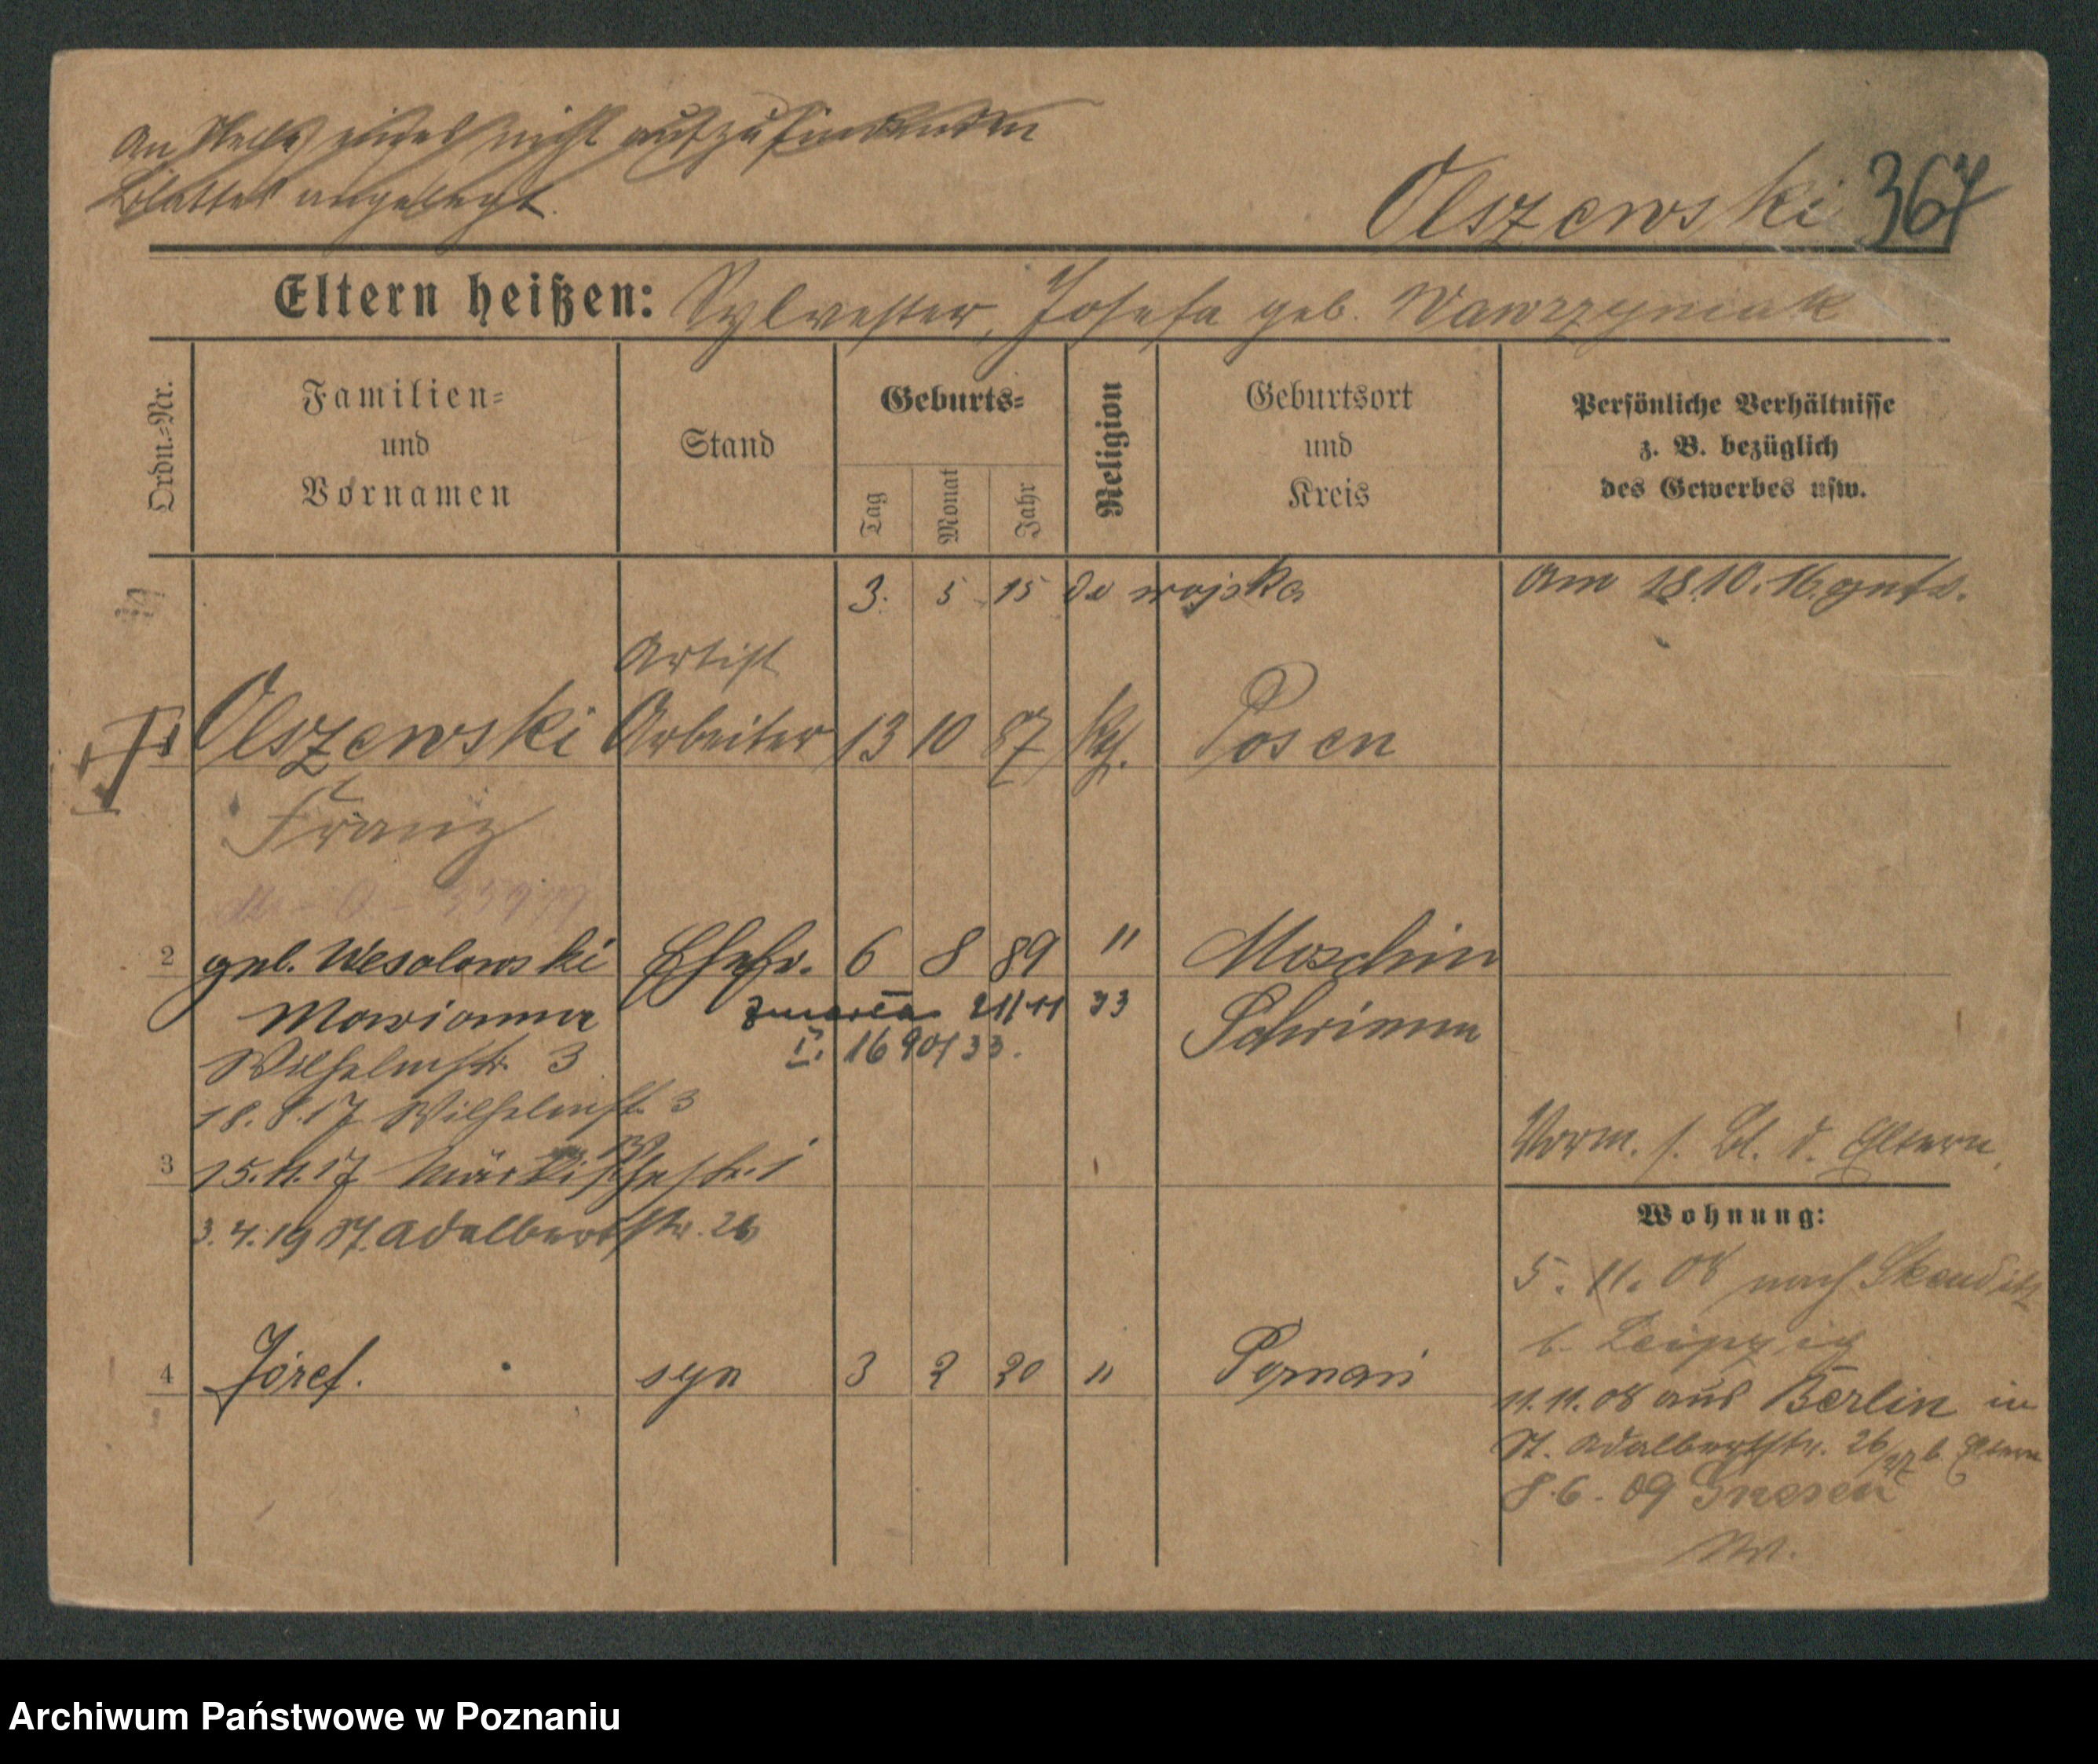 An Stelle eines nicht aufzufindenden
Blattes angelegt.
Olszewski 367
Eltern heißen: Sylvester, Josefa geb. Wawrzyniak
Ordn.-Nr.
Familien-
und
Vornamen
Stand
Geburts-
Tag
Monat
Jahr
Religion
Geburtsort
und
Kreis
Persönliche Verhältnisse
z. B. bezüglich
des Gewerbes usw.
3. 5 15 do wojska
am 18.10.16
Artist
1 Olszewski Arbeiter 13 10 87 kth. Posen
Franz
2 geb. Wesolowski Ehefr. 6 8 89 " Moschin
Marianna zmarła 21/11 33 Schrimm
I. 1690/33.
Wilhelmstr. 3
18.8.17 Wilhelmstr. 3
3 15.11.17 Märkischestr. 1
Vorm. s. Bl. d. Eltern.
3.4.19 St. Adalbertstr. 26
Wohnung:
5. 11. 08 nach Skeuditz
b. Leipzig
4 Józef. syn 3 2 20 " Poznań
11.11.08 aus Berlin in
St. Adalbertstr. 26/27 b. Eltern
8.6.09 Gnesen
Archiwum Państwowe w Poznaniu